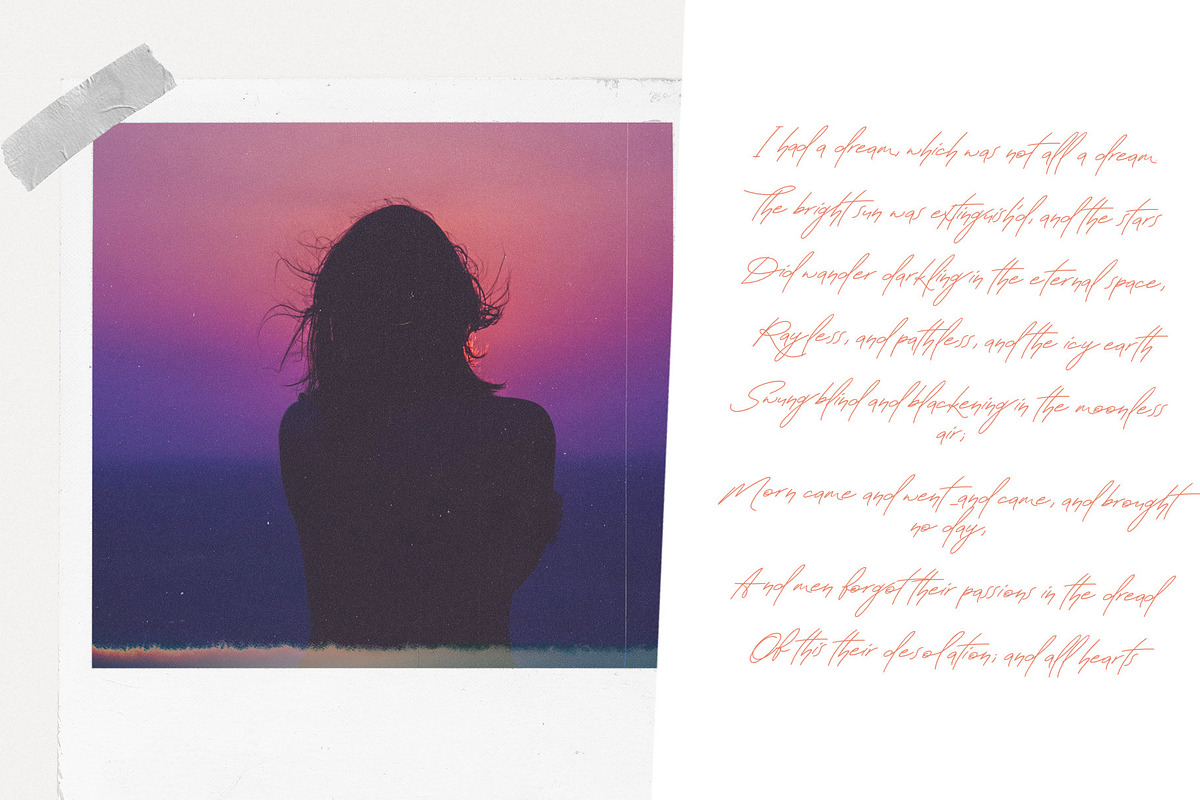 I had a dream, which was not all a dream
The bright sun was extinguish'd, and the stars
Did wander darkling in the eternal space,
Rayless, and pathless, and the icy earth
Swung blind and blackening in the moonless
air;
Morn came and went and came, and brought
no day,
And men forgot their passions in the dread
Of this their desolation; and all hearts